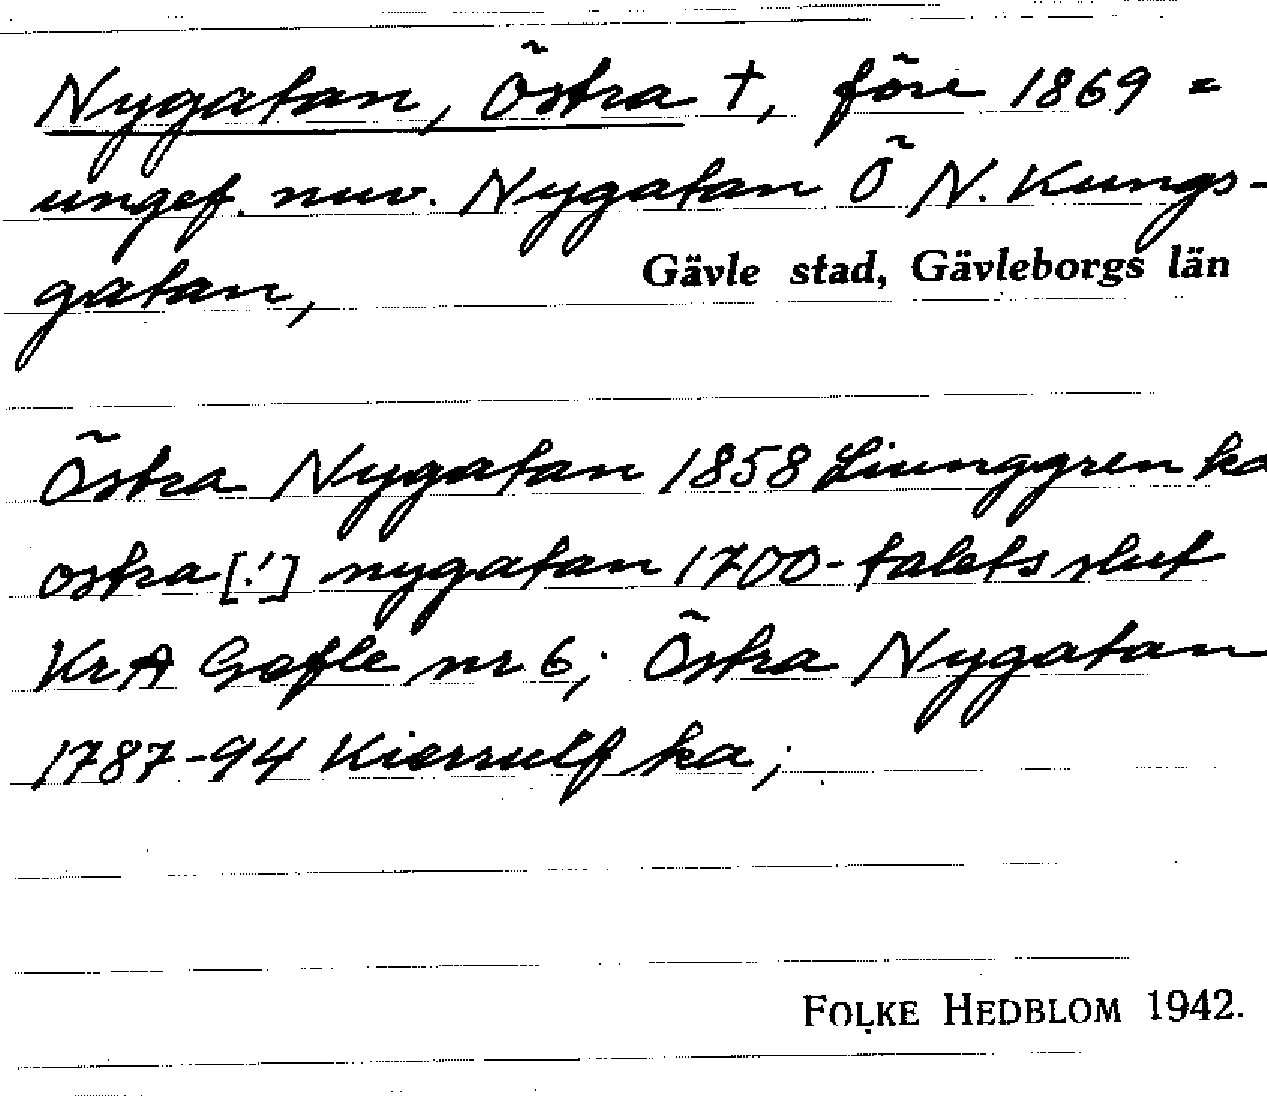 Nygatan, Östra †, före 1869 =
ungef. nuv. Nygatan Ö N. Kungs-
gatan,
Gävle stad, Gävleborgs län
Östra Nygatan 1858 Liunggren ka
ostra [!] nygatan 1700-talets slut
KrA Gefle nr 6; Östra Nygatan
1787-94 Kierrulf ka;
FOLKE HEDBLOM 1942.